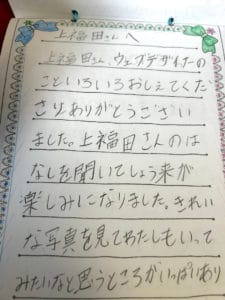 上福田さんへ
上福田さん、ウェブデザイナーの
こといろいろおしえてくた
さりありがとうござい
ました。上福田さんのは
なしを聞いてしょう来が
楽しみになりました。きれい
な写真を見てわたしもいって
みたいなと思うところがいっぱいあり